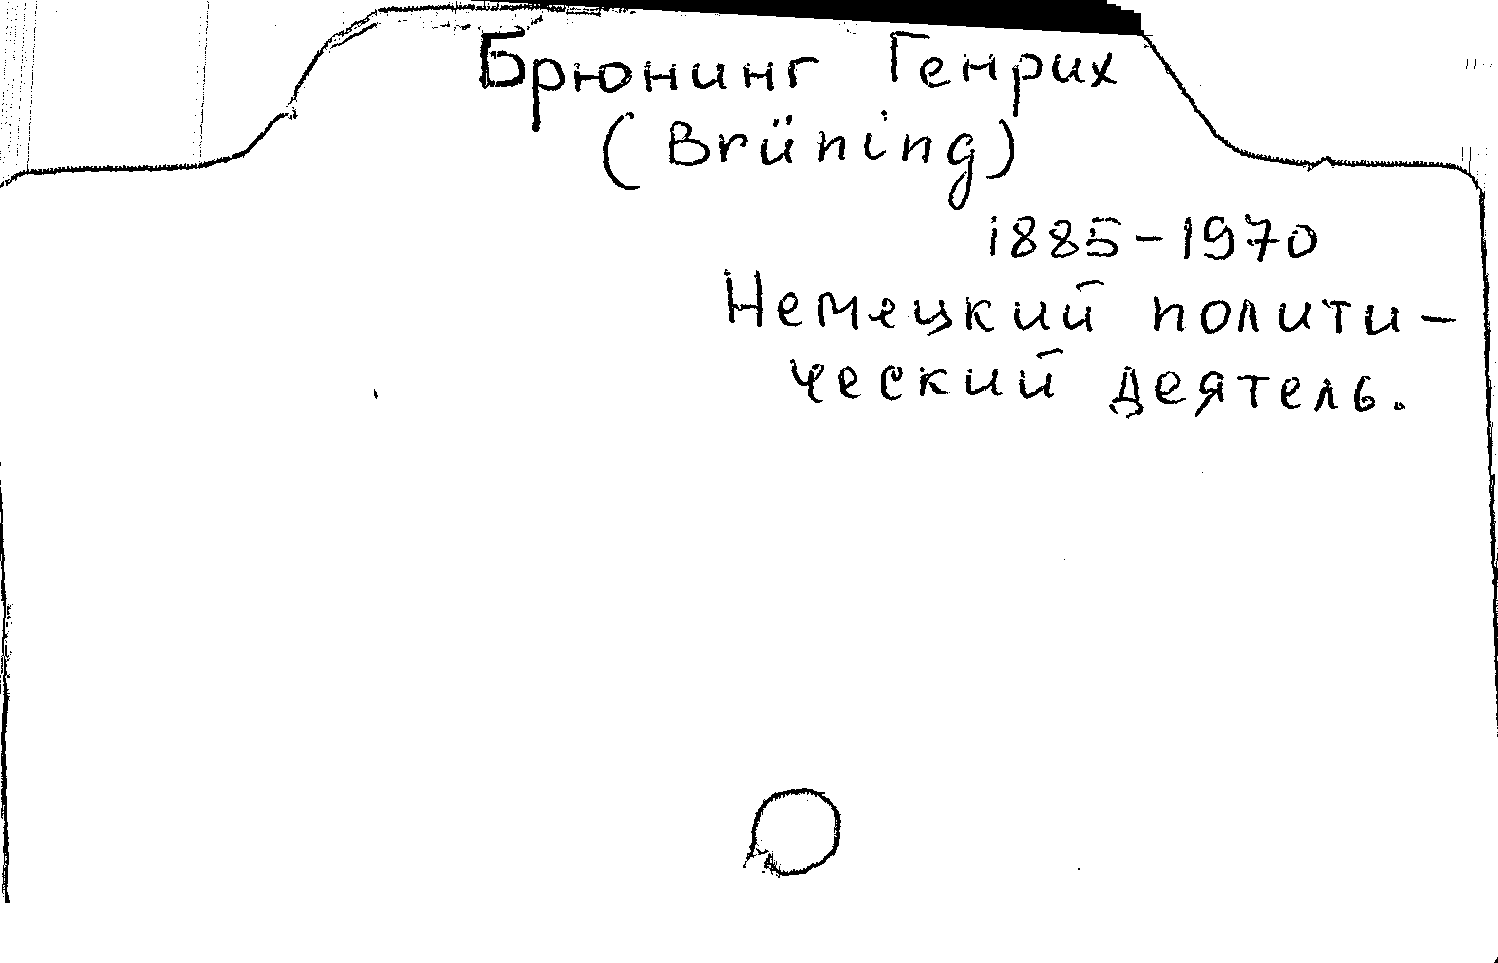 Брюнинг Генрих
(Brüning)
1885-1970
Немецкий полити-
ческий деятель.